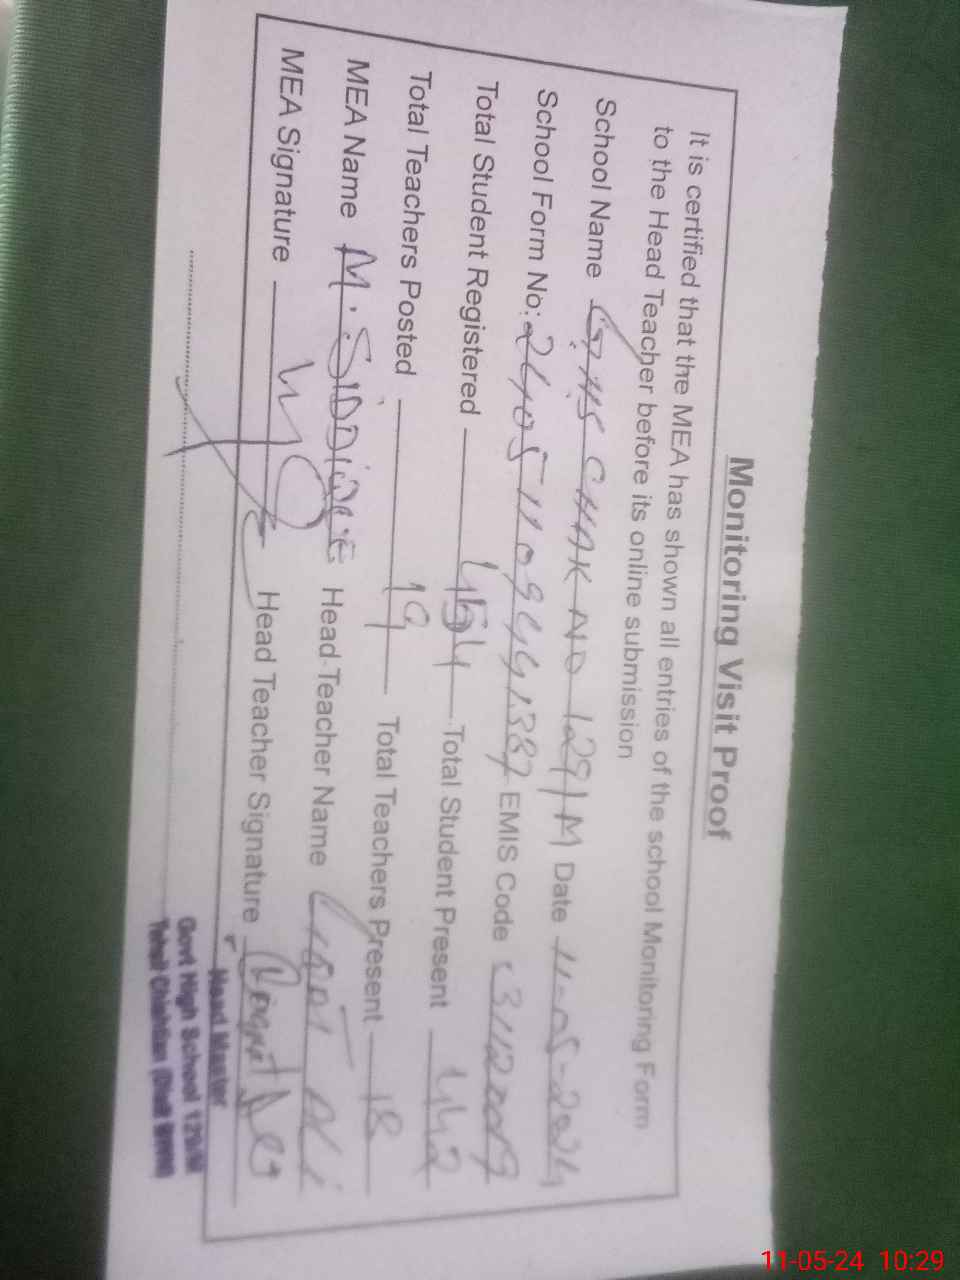 Monitoring Visit Proof
It is certified that the MEA has shown all entries of the school Monitoring Form
to the Head Teacher before its online submission
School Name GHS CHAK NO 129/M Date 11-05-2024
School Form No: EMIS Code
Total Student Registered 454 Total Student Present 442
Total Teachers Posted 19 Total Teachers Present 18
MEA Name M. SIDDIQUE Head Teacher Name Ali
MEA Signature Head Teacher Signature
Head Master
Govt High School 129/M
Tehsil Chishtian
11-05-24 10:29